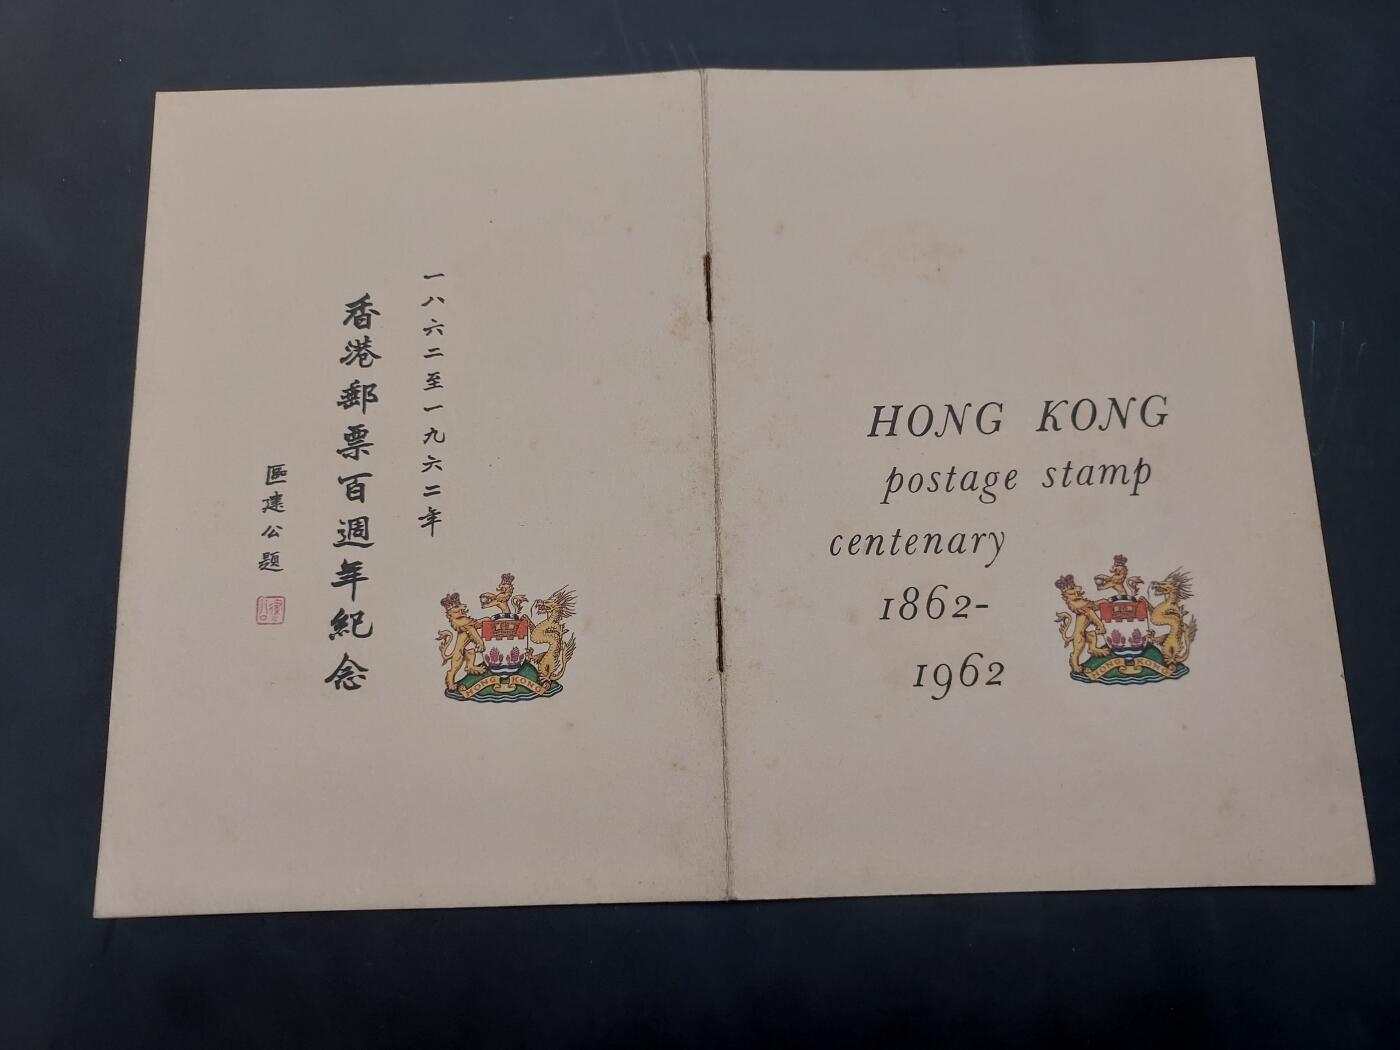 一八六二至一九六二年
香港郵票百週年紀念
區建公題
HONG KONG
HONG KONG
postage stamp
centenary
1862-
1962
HONG KONG